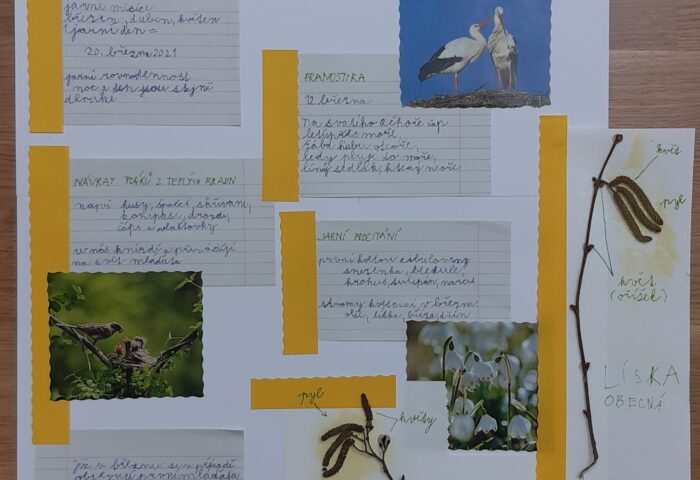 jarní měsíce:
březen, duben, květen
1. jarní den =
20. března 2021
jarní rovnodennost
noc a den jsou stejně
dlouhé
PRANOSTIKA
12. března
Na svatého Řehoře čáp
letí přes moře,
žába hubu otevře,
ledy plují do moře,
líný sedlák, který neoře.
NÁVRAT PTÁKŮ Z TEPLÝCH KRAJIN
např. husy, špačci, skřivani,
konipas, drozdi,
čáps a vlaštovky
u nás hnízdí a přivádějí
na svět mláďata
JARNÍ PROCITÁNÍ
první kvetou cibuloviny
sněženka, bledule,
krokus, tulipán, narcis
stromy kvetoucí v březnu
olše, líska, bříza, dřín
pyl
květy
květ
pyl
květ
(oříšek)
LÍSKA
OBECNÁ
Již v březnu se v přírodě
objevují první mláďata